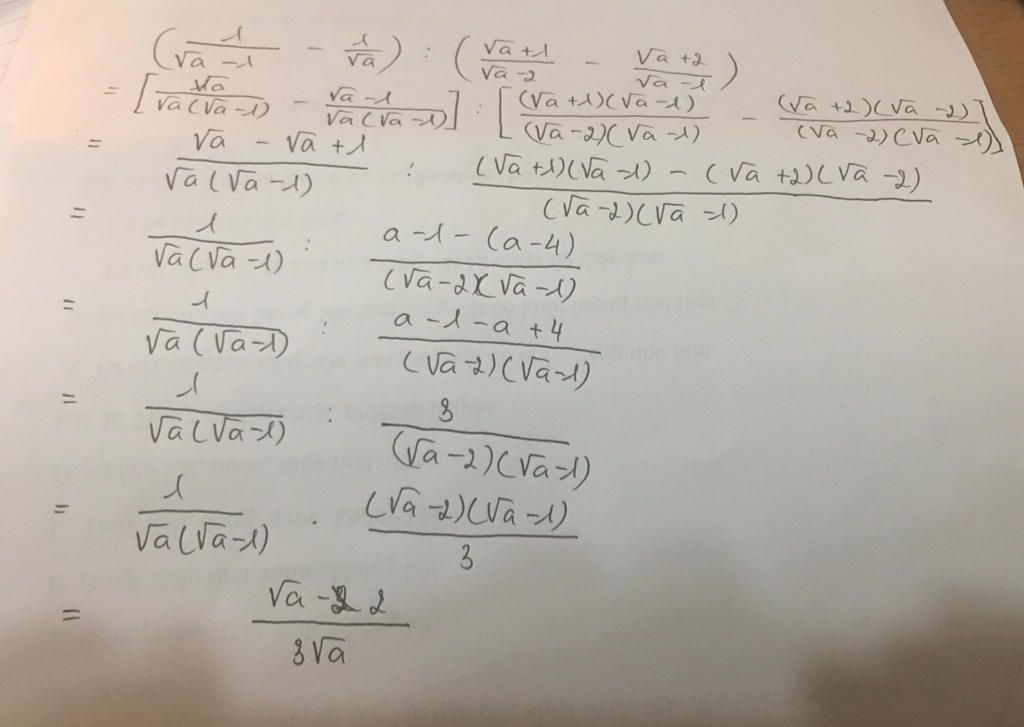 (1/(√a −1) − 1/√a) : ((√a +1)/(√a −2) − (√a +2)/(√a −1))
= [√a/(√a(√a −1)) − (√a −1)/(√a(√a −1))] : [(√a +1)(√a −1)/((√a −2)(√a −1)) − (√a +2)(√a −2)/((√a −2)(√a −1))]
= (√a − √a +1)/(√a(√a −1)) : ((√a +1)(√a −1) − (√a +2)(√a −2))/((√a −2)(√a −1))
= 1/(√a(√a −1)) : (a −1 −(a −4))/((√a −2)(√a −1))
= 1/(√a(√a −1)) : (a −1 −a +4)/((√a −2)(√a −1))
= 1/(√a(√a −1)) : 3/((√a −2)(√a −1))
= 1/(√a(√a −1)) . (√a −2)(√a −1)/3
= (√a − 2)/(3√a)